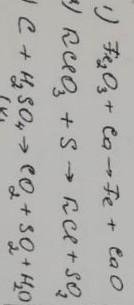 1) Fe₂O₃ + Ca → Fe + CaO
) KClO₃ + S → KCl + SO₂
) C + H₂SO₄ → CO₂ + SO₂ + H₂O